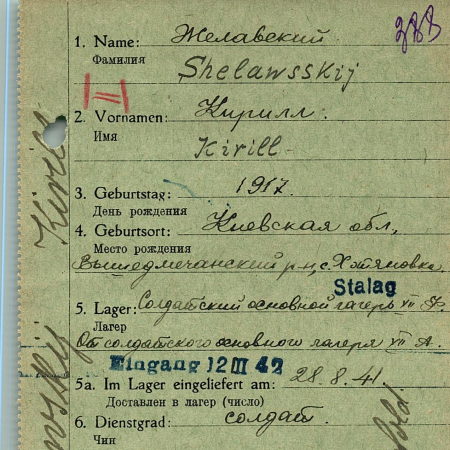 388
1. Name: Желавский
Фамилия
Shelawsskij
2. Vornamen: Кирилл.
Имя
Kirill
3. Geburtstag: 1917.
День рождения
4. Geburtsort: Киевская обл,
Место рождения
р-н, с.
Stalag
5. Lager: Солдатский основной лагерь VII А.
Лагер
От солдатского основного лагеря VII А.
Eingang 12 III 42
5a. Im Lager eingeliefert am: 28. 8. 41.
Доставлен в лагер (число)
6. Dienstgrad: солдат.
Чин
Kirill